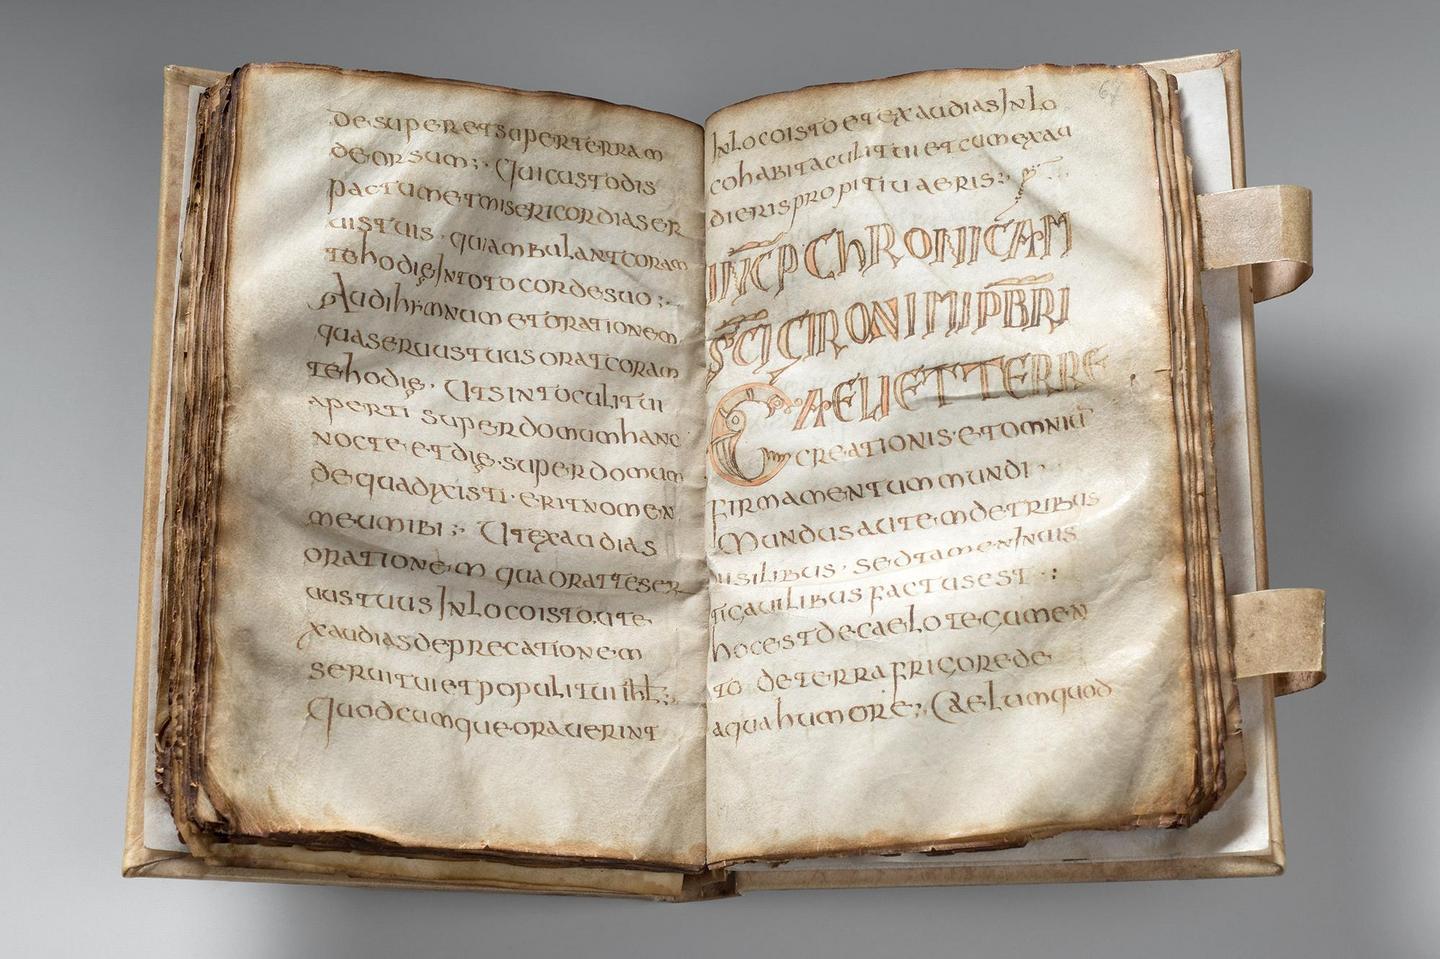 desuper et super terram
deorsum; · Qui custodis
pactum et misericordia ser
uis tuis · qui ambulant coram
te hodie In toto corde suo; ·
Audi hymnum et orationem
qua seruus tuus orat coram
te hodie · Ut sint oculi tui
aperti super domum hanc
nocte · et die · super domum
de qua dixisti · erit nomen
meum ibi; · Ut exaudias
orationem qua orat te ser
uus tuus In loco isto · ut e
xaudias deprecationem
serui tui et populi tui ihl; ·
Quodcumque orauerint
67
In loco isto et exaudias In lo
co habitaculi tui et cum exau
dieris propitiu aeris; ·
INCP ChRONICAM
SCI GIRONIMI PBRI
CAELI ET TERRE
creationis · et omniu
firmamentum mundi ·
Mundus autem de tribus
uisilibus · sed tamen Inuis
ticauilibus factus est · :
hoc est de caelo tegumen
to de terra frigore de
aqua humore; · Caelum quod